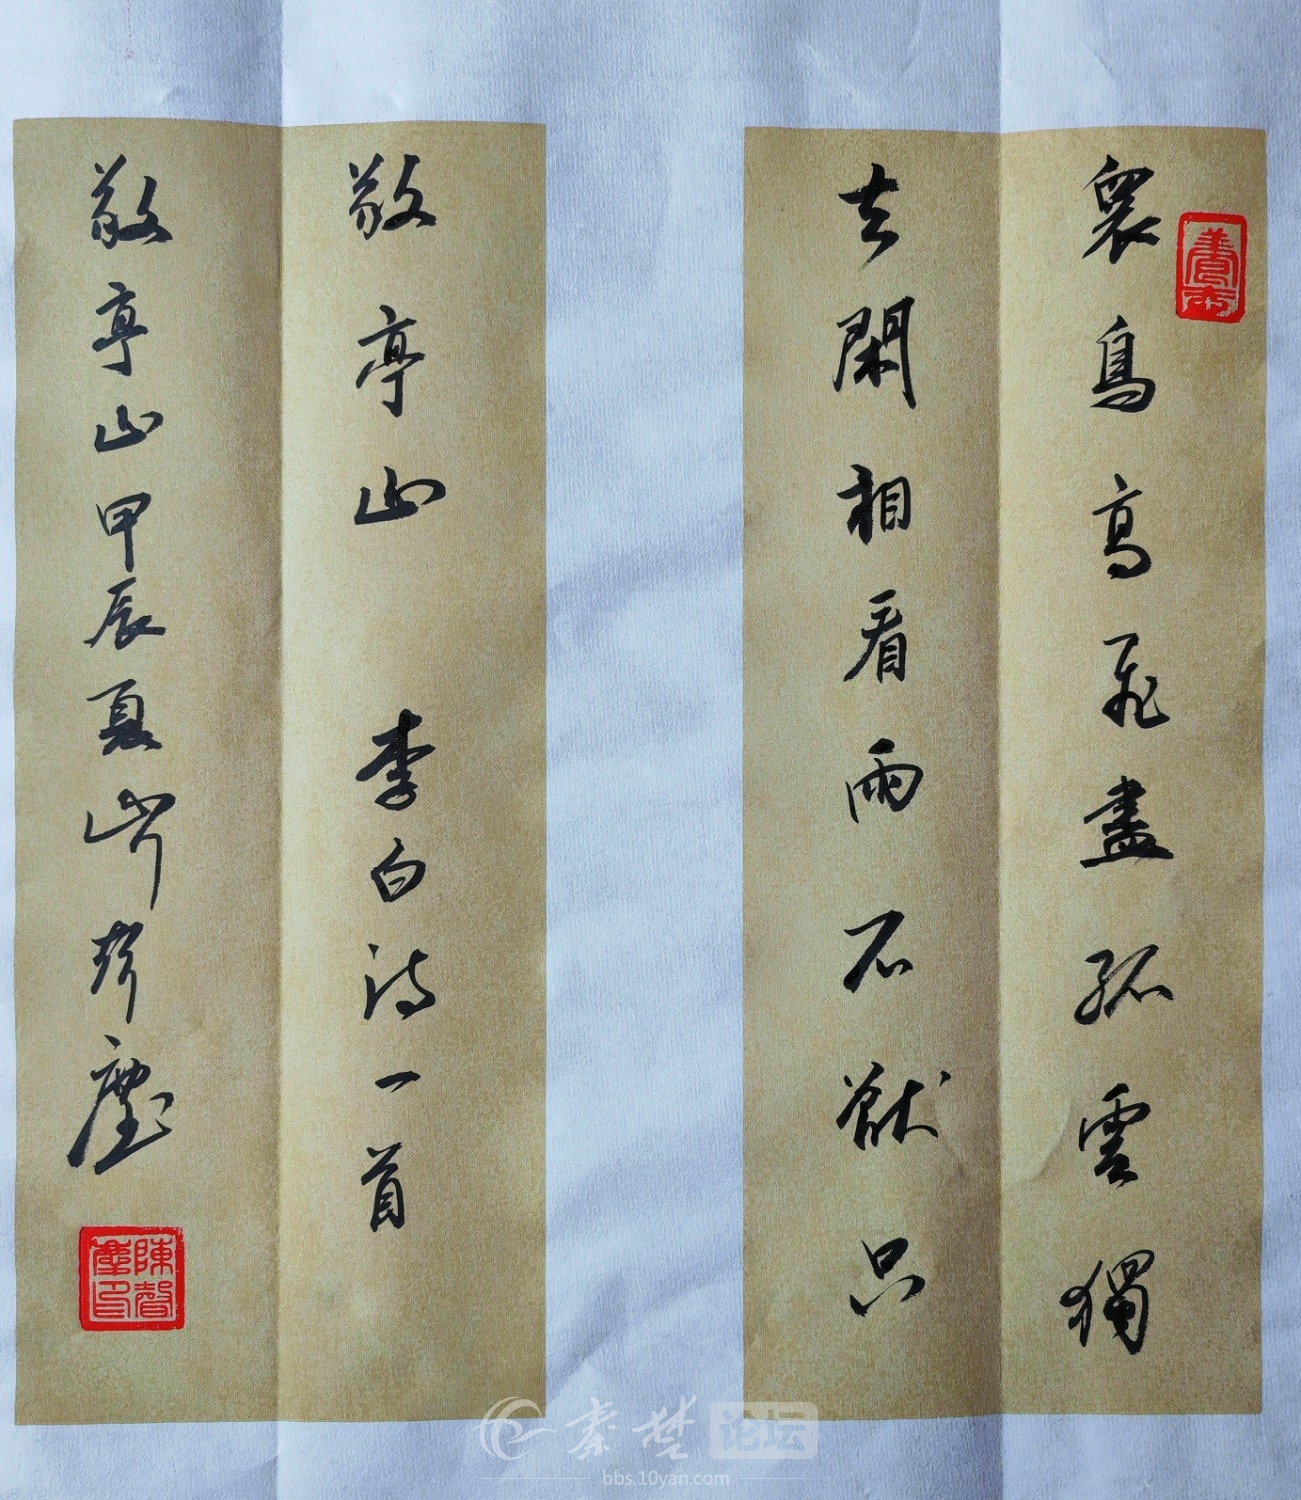 衆鳥高飛盡孤雲獨
去閑相看兩不猒只
敬亭山 李白詩一首
敬亭山甲辰夏
秦楚论坛
bbs.10yan.com